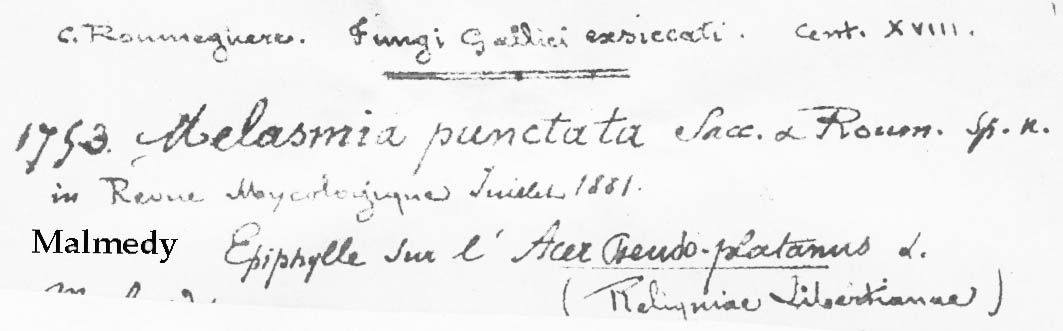 C. Roumeguere. Fungi Gallici exsiccati. Cent. XVIII.
1753. Melasmia punctata Sacc. & Roum. Sp. n.
in Revue Mycologique Juillet 1881.
Malmedy Epiphylle sur l' Acer Pseudo-platanus L.
(Reliquiae Libertianae)